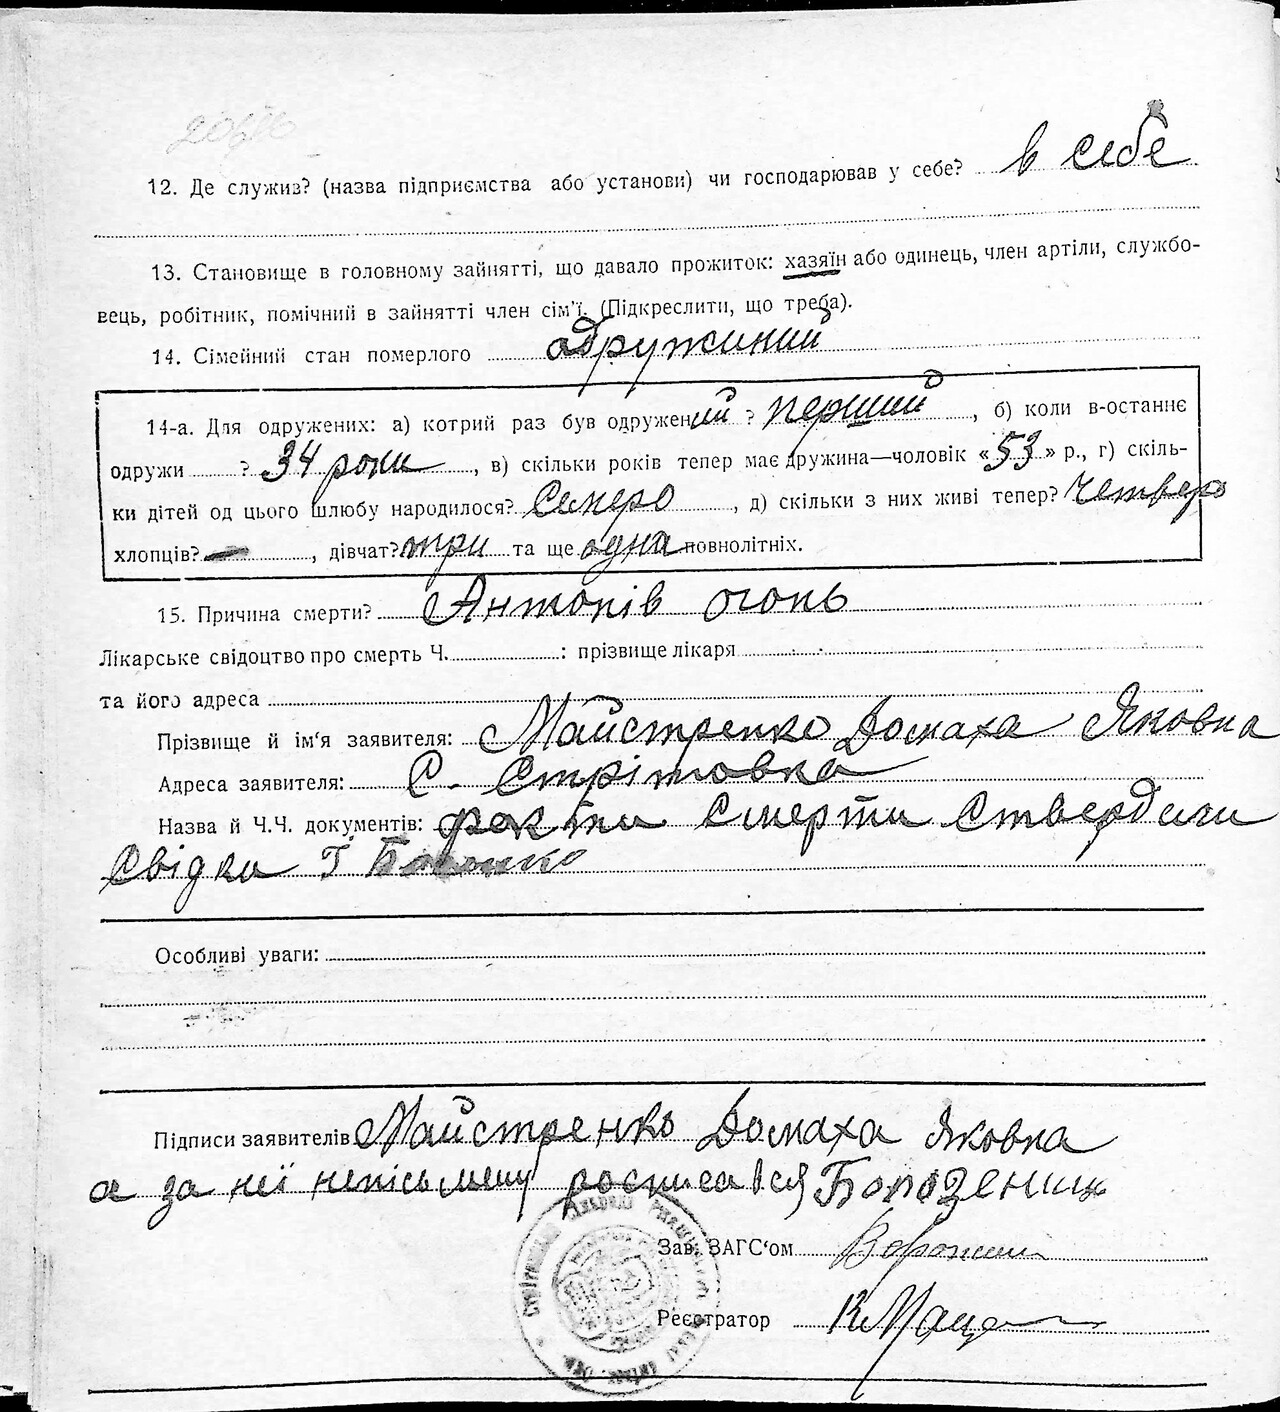 12. Де служив? (назва підприємства або установи) чи господарював у себе? в себе
13. Становище в головному зайнятті, що давало прожиток: хазяїн або одинець, член артіли, службо-
вець, робітник, помічний в зайнятті член сім'ї. (Підкреслити, що треба).
14. Сімейний стан померлого одружиний
14-а. Для одружених: а) котрий раз був одружений ? перший, б) коли в-останнє
одружи ? 34 роки, в) скільки років тепер має дружина—чоловік «53» р., г) скіль-
ки дітей од цього шлюбу народилося? Семеро, д) скільки з них живі тепер? Четверо
хлопців? —, дівчат? три та ще одна повнолітніх.
15. Причина смерти? Антонів огонь
Лікарське свідоцтво про смерть Ч. : прізвище лікаря
та його адреса
Прізвище й ім'я заявителя: Майстренко Домаха Яковна
Адреса заявителя: С. Стрітовка
Назва й Ч.Ч. документів: факти смерти ствердили
свідки Г
Особливі уваги:
Підписи заявителів Майстренко Домаха Яковна
а за неї непісьмену росписався
Зав. ЗАГС'ом
Реєстратор